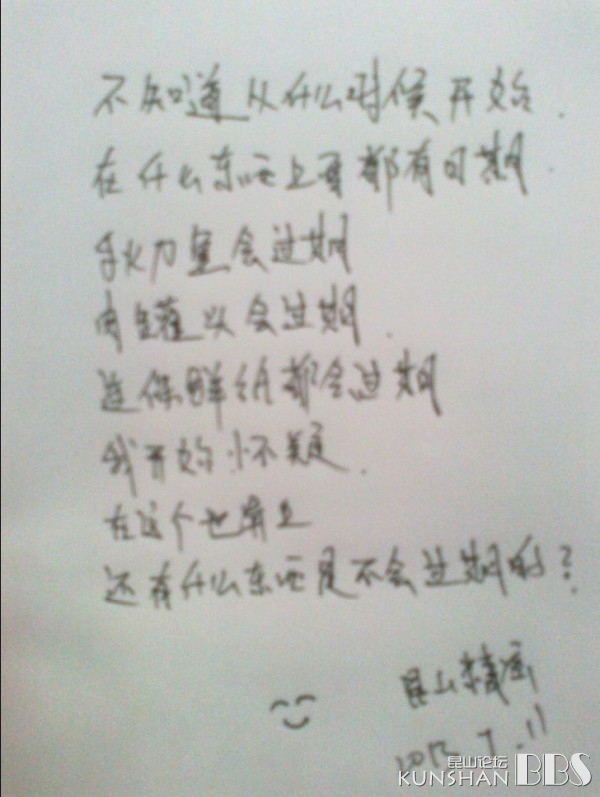 不知道从什么时候开始.
在什么东西上面都有日期.
秋刀鱼会过期
肉罐以会过期.
连保鲜纸都会过期
我开始怀疑.
在这个世界上
还有什么东西是不会过期的?
昆山
2012.7.11
昆山论坛
KUNSHAN BBS